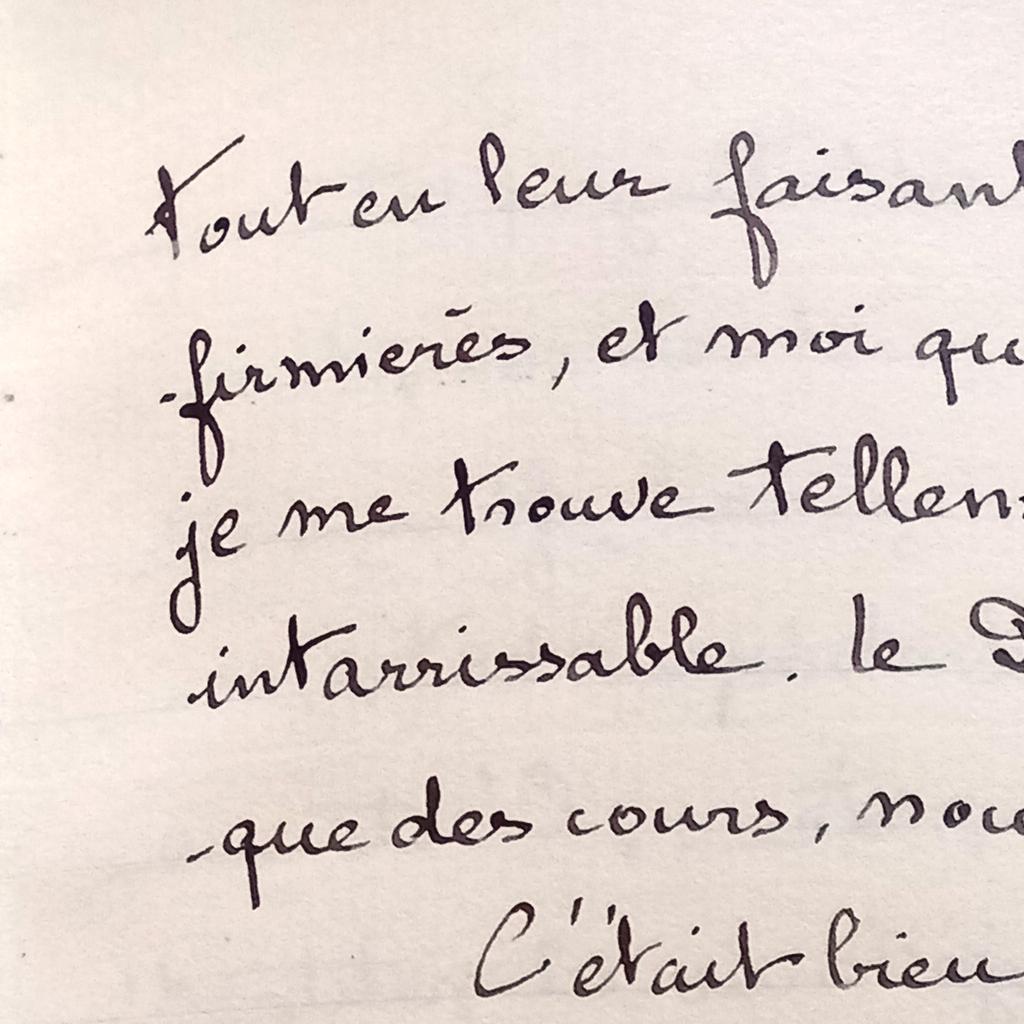 Tout en leur faisant
-firmières, et moi qu
je me trouve tellem
intarrissable. le D
-que des cours, nou
C'était bien